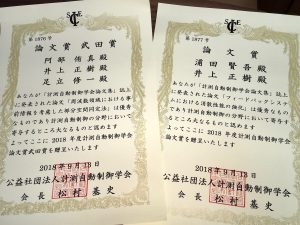 SICE
第1876号
論文賞 武田賞
阿部 侑真殿
井上 正樹殿
足立 修一殿
あなたが「計測自動制御学会論文集」誌上
に発表された論文「周波数領域における事
前情報を考慮した部分空間同定法」は優秀
であり計測自動制御の分野において寄
与するところ大なるものと認めます
よってここに2018年度計測自動制御学会
論文賞武田賞を贈呈いたします
2018年9月13日
公益社団法人計測自動制御学会
会長 松村基史
SICE
第1877号
論文賞
浦田 賢吾殿
井上 正樹殿
あなたが「計測自動制御学会論文集」誌上
に発表された論文「フィードバックシステ
ムにおける消散性の
であり計測自動制御の分野において寄
与するところ大なるものと認めます
よってここに2018年度計測自動制御学会
論文賞を贈呈いたします
2018年9月13日
公益社団法人計測自動制御学会
会長 松村基史